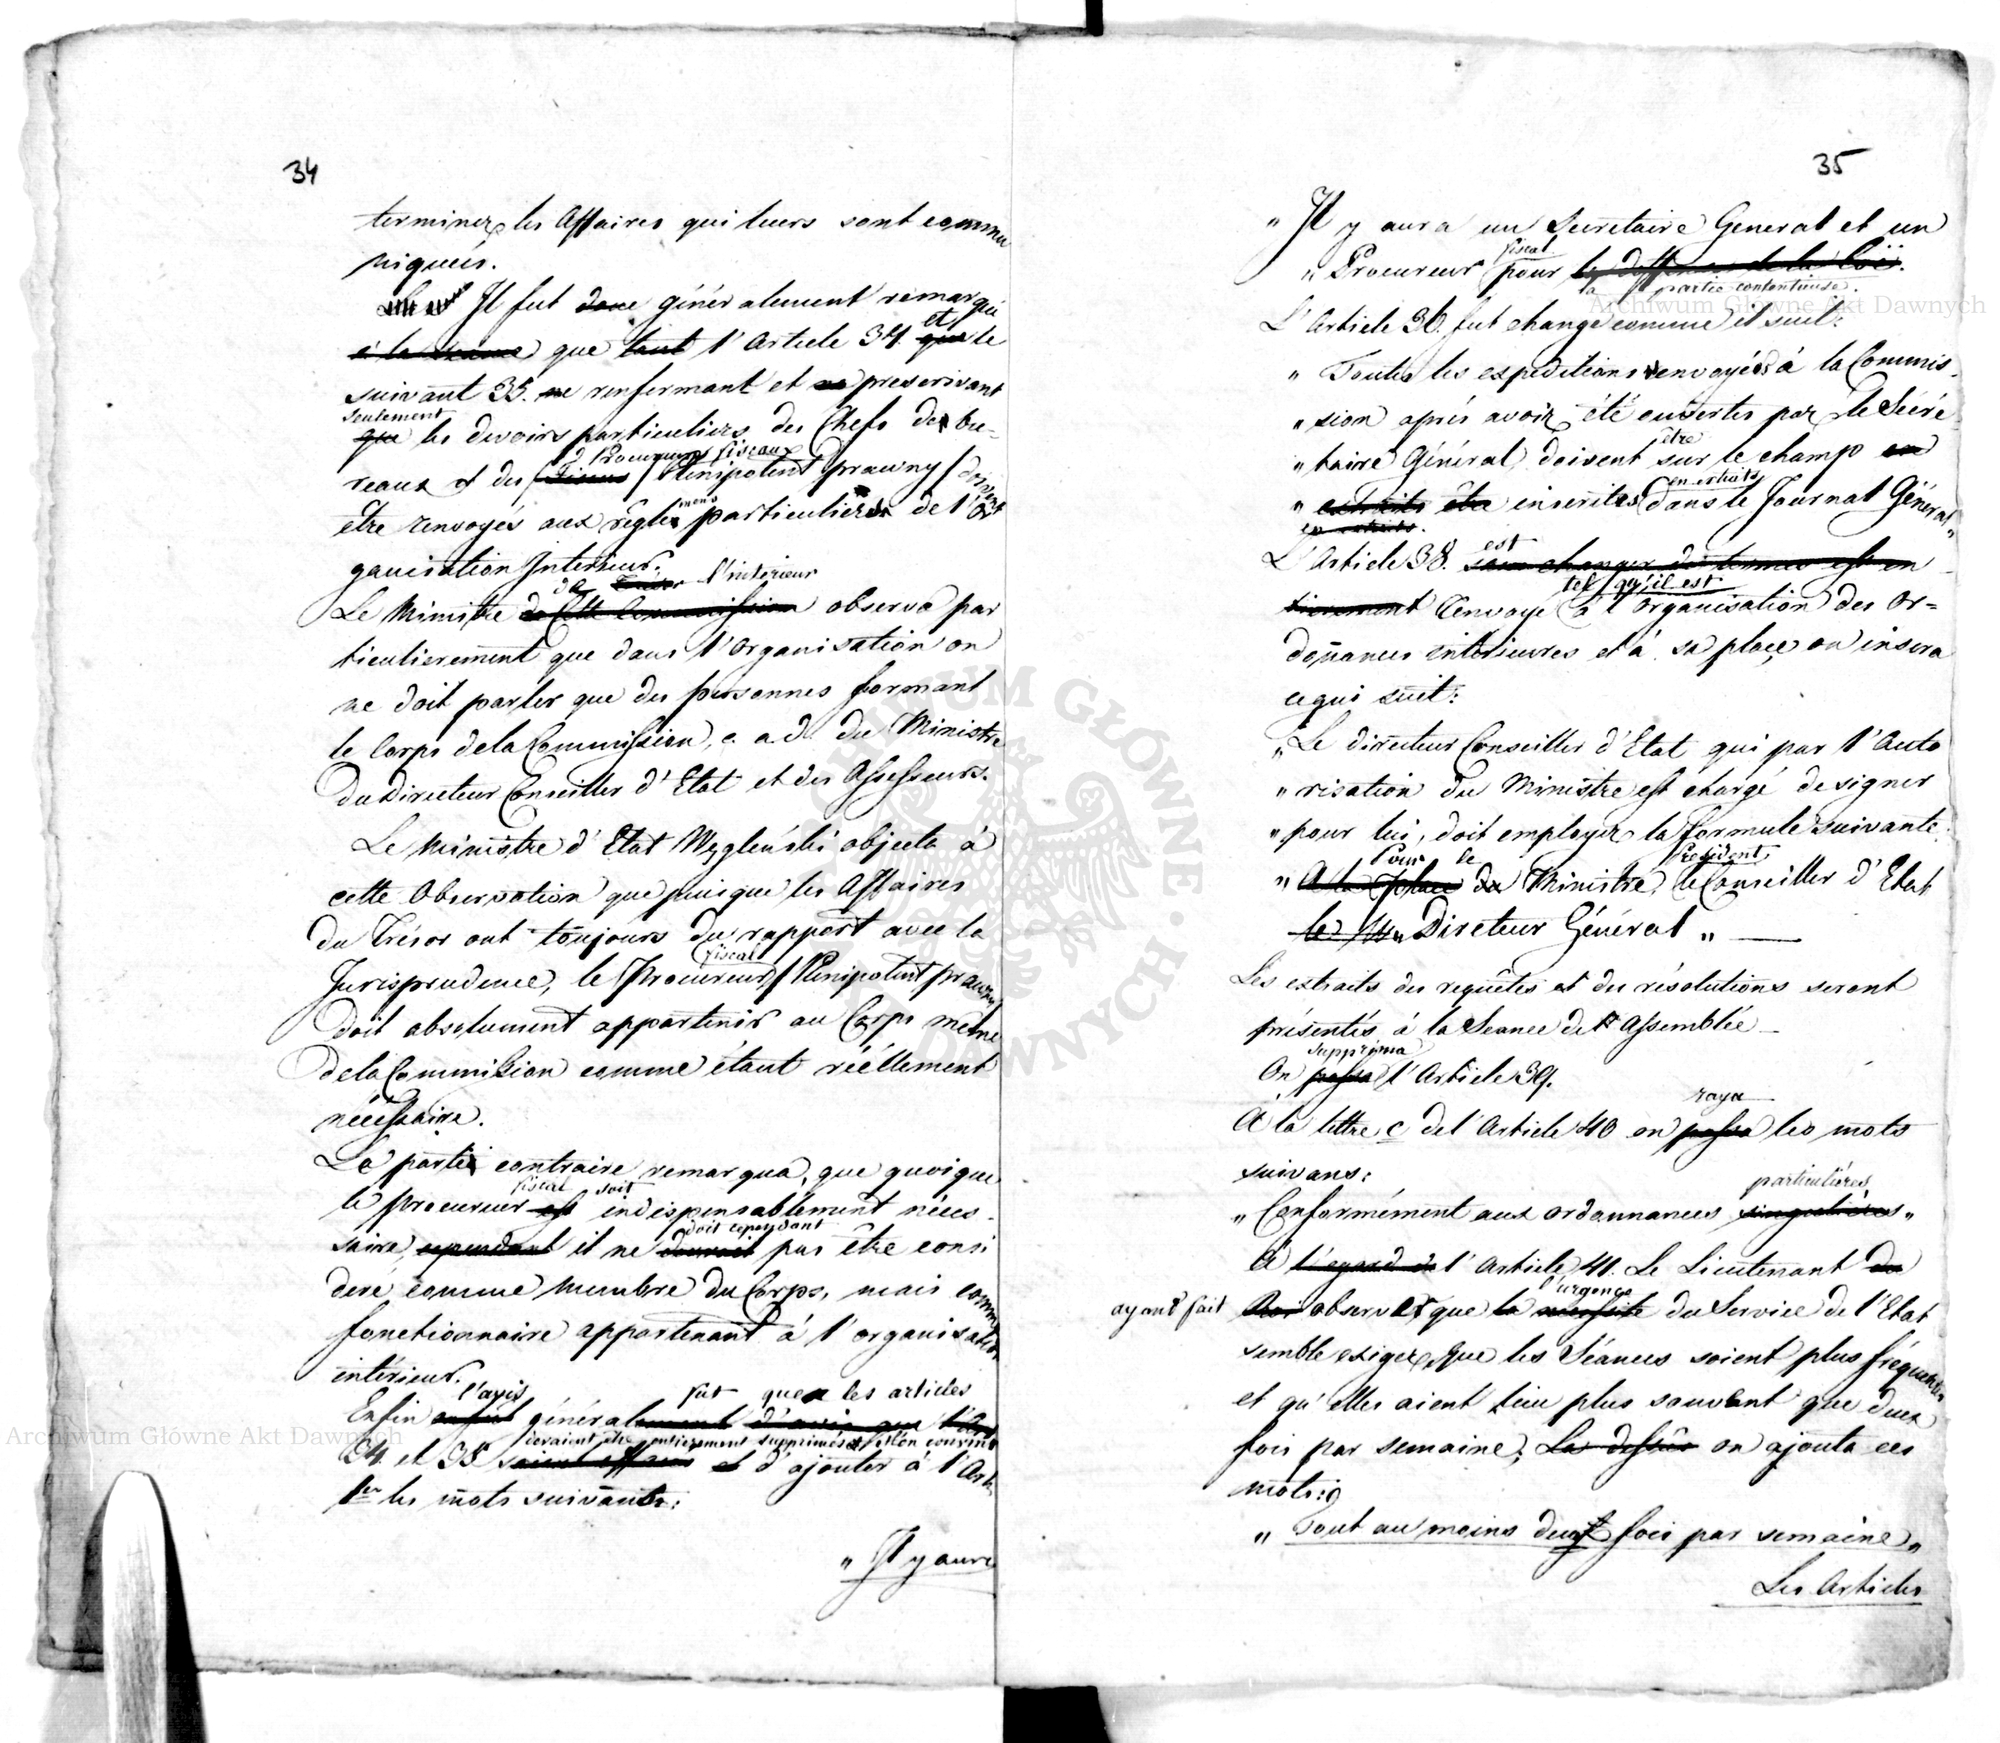 34
terminer les Affaires qui leurs sont commu
niqueés.
Il fut donc généralement remarqué
à la que tant l'Article 34. et que le
suivant 35. ne renfermant et ne prescrivant
seulement
que les devoirs particuliers des Chefs des bu-
Procureurs fiscaux
reaux et des / Plenipotent prawny / doivent
être renvoyés aux règlemens particuliers de l'Or
ganisation Interieur.
de l'intérieur
Le Ministre de Cette Commission observa par
ticulierement que dans l'Organisation on
ne doit parler que des personnes formant
le Corps de la Commission, c. a. d. du Ministre
Du Directeur Conseiller d'Etat et des Assesseurs.
Le Ministre d'Etat Węgleński objecta à
cette Observation que puisque les Affaires
du Trésor ont toujours du rapport avec la
fiscal
Jurisprudence, le Procureur / Plenipotent prawny
doit absolument appartenir au Corps même
de la Commission comme étant réellement
nécéssaire.
La partie contraire remarqua, que quoique
fiscal soit
le procureur est indispensablement néces-
doit cependant
saire, cependant il ne devroit pas être consi
deré comme membre du Corps, mais comme
fonctionnaire appartenant à l'organisation
intérieur.
l'avis fut que les articles
Enfin généralement d'avis que l'Art
devaient être entierement supprimés et l'on convint
34 et 35 et d'ajouter à l'Art.
1er les mots suivants:
„ Il y aura
35
„ Il y aura un Secretaire General et un
fiscal
„ Procureur pour la deffense de la Loi.
la partie contentieuse.
L'Article 36. fut changé comme il suit:
„ Toutes les expeditions envoyées à la Commis-
„ sion après avoir été ouvertes par le Sécré-
être
„ taire Général, doivent sur le champ en
en extraits
„ extraits être inserites dans le Journal Général „
en extraits.
est
L'Article 38. sans changer des termes est en
tel qu'il est
tierement renvoyé à l'Organisation des Or=
donances intérieures et à sa place on insera
ce qui suit:
„ Le directeur Conseiller d'Etat qui par l'Auto
„ risation du Ministre est chargé de signer
„ pour lui, doit employer la formule suivante:
Pour le President
„ A la place du Ministre, le Conseiller d'Etat
le Directeur Général „
Les extraits des requêtes et des résolutions seront
présentés à la Seance de l'Assemblée
supprima
On passa l'Article 39.
raya
A la lettre c de l'Article 40 on passa les mots
suivans:
particulières
„ Conformément aux ordonnances singulières „
A l'egard de l'Article 41. Le Lieutenant du
l'urgence
ayant fait Roi observer que la nécessité du Service de l'Etat
semble exiger, que les Séances soient plus fréquentes
et qu'elles aient lieu plus souvent que deux
fois par semaine, La dessus on ajouta ces
mots:
„ Tout au moins deux fois par semaine „
Les Articles
Archiwum Główne Akt Dawnych
Archiwum Główne Akt Dawnych
ARCHIWUM GŁÓWNE · AKT DAWNYCH ·